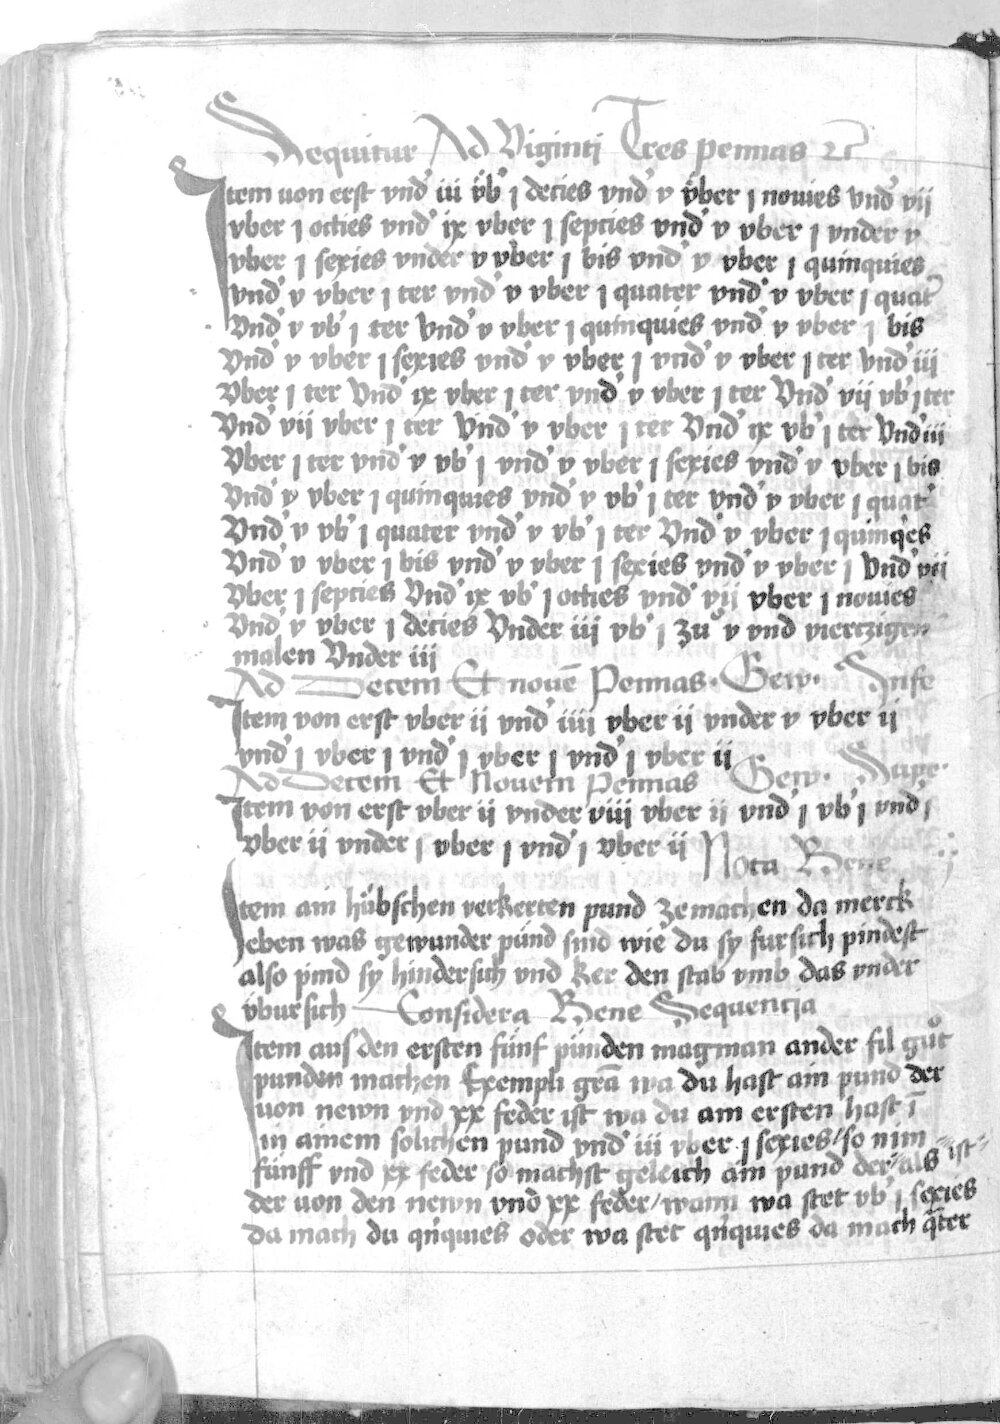 Sequitur Ad Viginti Tres pennas etc
Item uon erst vnd' iii v̈b' j decies vnd' v v̈ber j nouies vnd' vii
vber j octies vnd' ix vber j septies vnd' v vber j vnder v
vber j sexies vnder v vber j bis vnd' v vber j quinquies
vnd' v vber j ter vnd' v vber j quater vnd' v vber j quat'
Vnd' v vb' j ter Vnd' v vber j quinquies vnd' v vber j bis
Vnd' v vber j sexies vnd' v vber j vnd' v vber j ter vnd' iii
Vber j ter Vnd' ix vber j ter vnd' v vber j ter Vnd' vii vb' j ter
Vnd' vii vber j ter Vnd' v vber j ter Vnd' ix vb' j ter Vnd' iii
Vber j ter vnd' v vb' j vnd' v vber j sexies vnd' v vber j bis
Vnd' v vber j quinquies vnd' v vb' j ter vnd' v vber j quat'
Vnd' v vb' j quater vnd' v vb' j ter Vnd' v vber j quinq'es
Vnd' v vber j bis vnd' v vber j sexies vnd' v vber j Vnd' vii
Vber j septies Vnd' ix vb' j octies vnd' vii vber j nouies
Vnd' v vber j decies Vnder iii vb' j zuͦ v vnd viertzigen
malen Vnder iii
Ad Decem Et nouē Pennas. Gew. Infe
Item von erst vber ii vnd' iiii vber ii vnder v vber ii
vnd' j vber j vnd' j vber j vnd' j vber ii
Ad Decem Et Novem Pennas Gew. Supe.
Item von erst vber ii vnder viii vber ii vnd' j vb' j vnd' j
vber ii vnder j vber j vnd' j vber ii Nota Bene
Item am hübschen verkerten pund ze machen da merck
eben was gewunder pünd sind wie du sy fursich pindest
also pind sy hindersich vnd ker den stab vmb das vnder
v̈bursich Considera Bene Sequencia
Item aus den ersten fünf pünden mag man ander fil guͦt
punden machen Exempli grā wa du hast ain pund der
uon newn vnd xx feder ist wa du am ersten hast ī
in ainem solichen pund vnd' iii vber j sexies / so nim
fünff vnd xx feder so machst geleich ain pund der als ist
der uon den newn vnd xx feder / wann wa stet vb' j sexies
da mach du qn̄quies oder wa stet qn̄quies da mach q̄ter